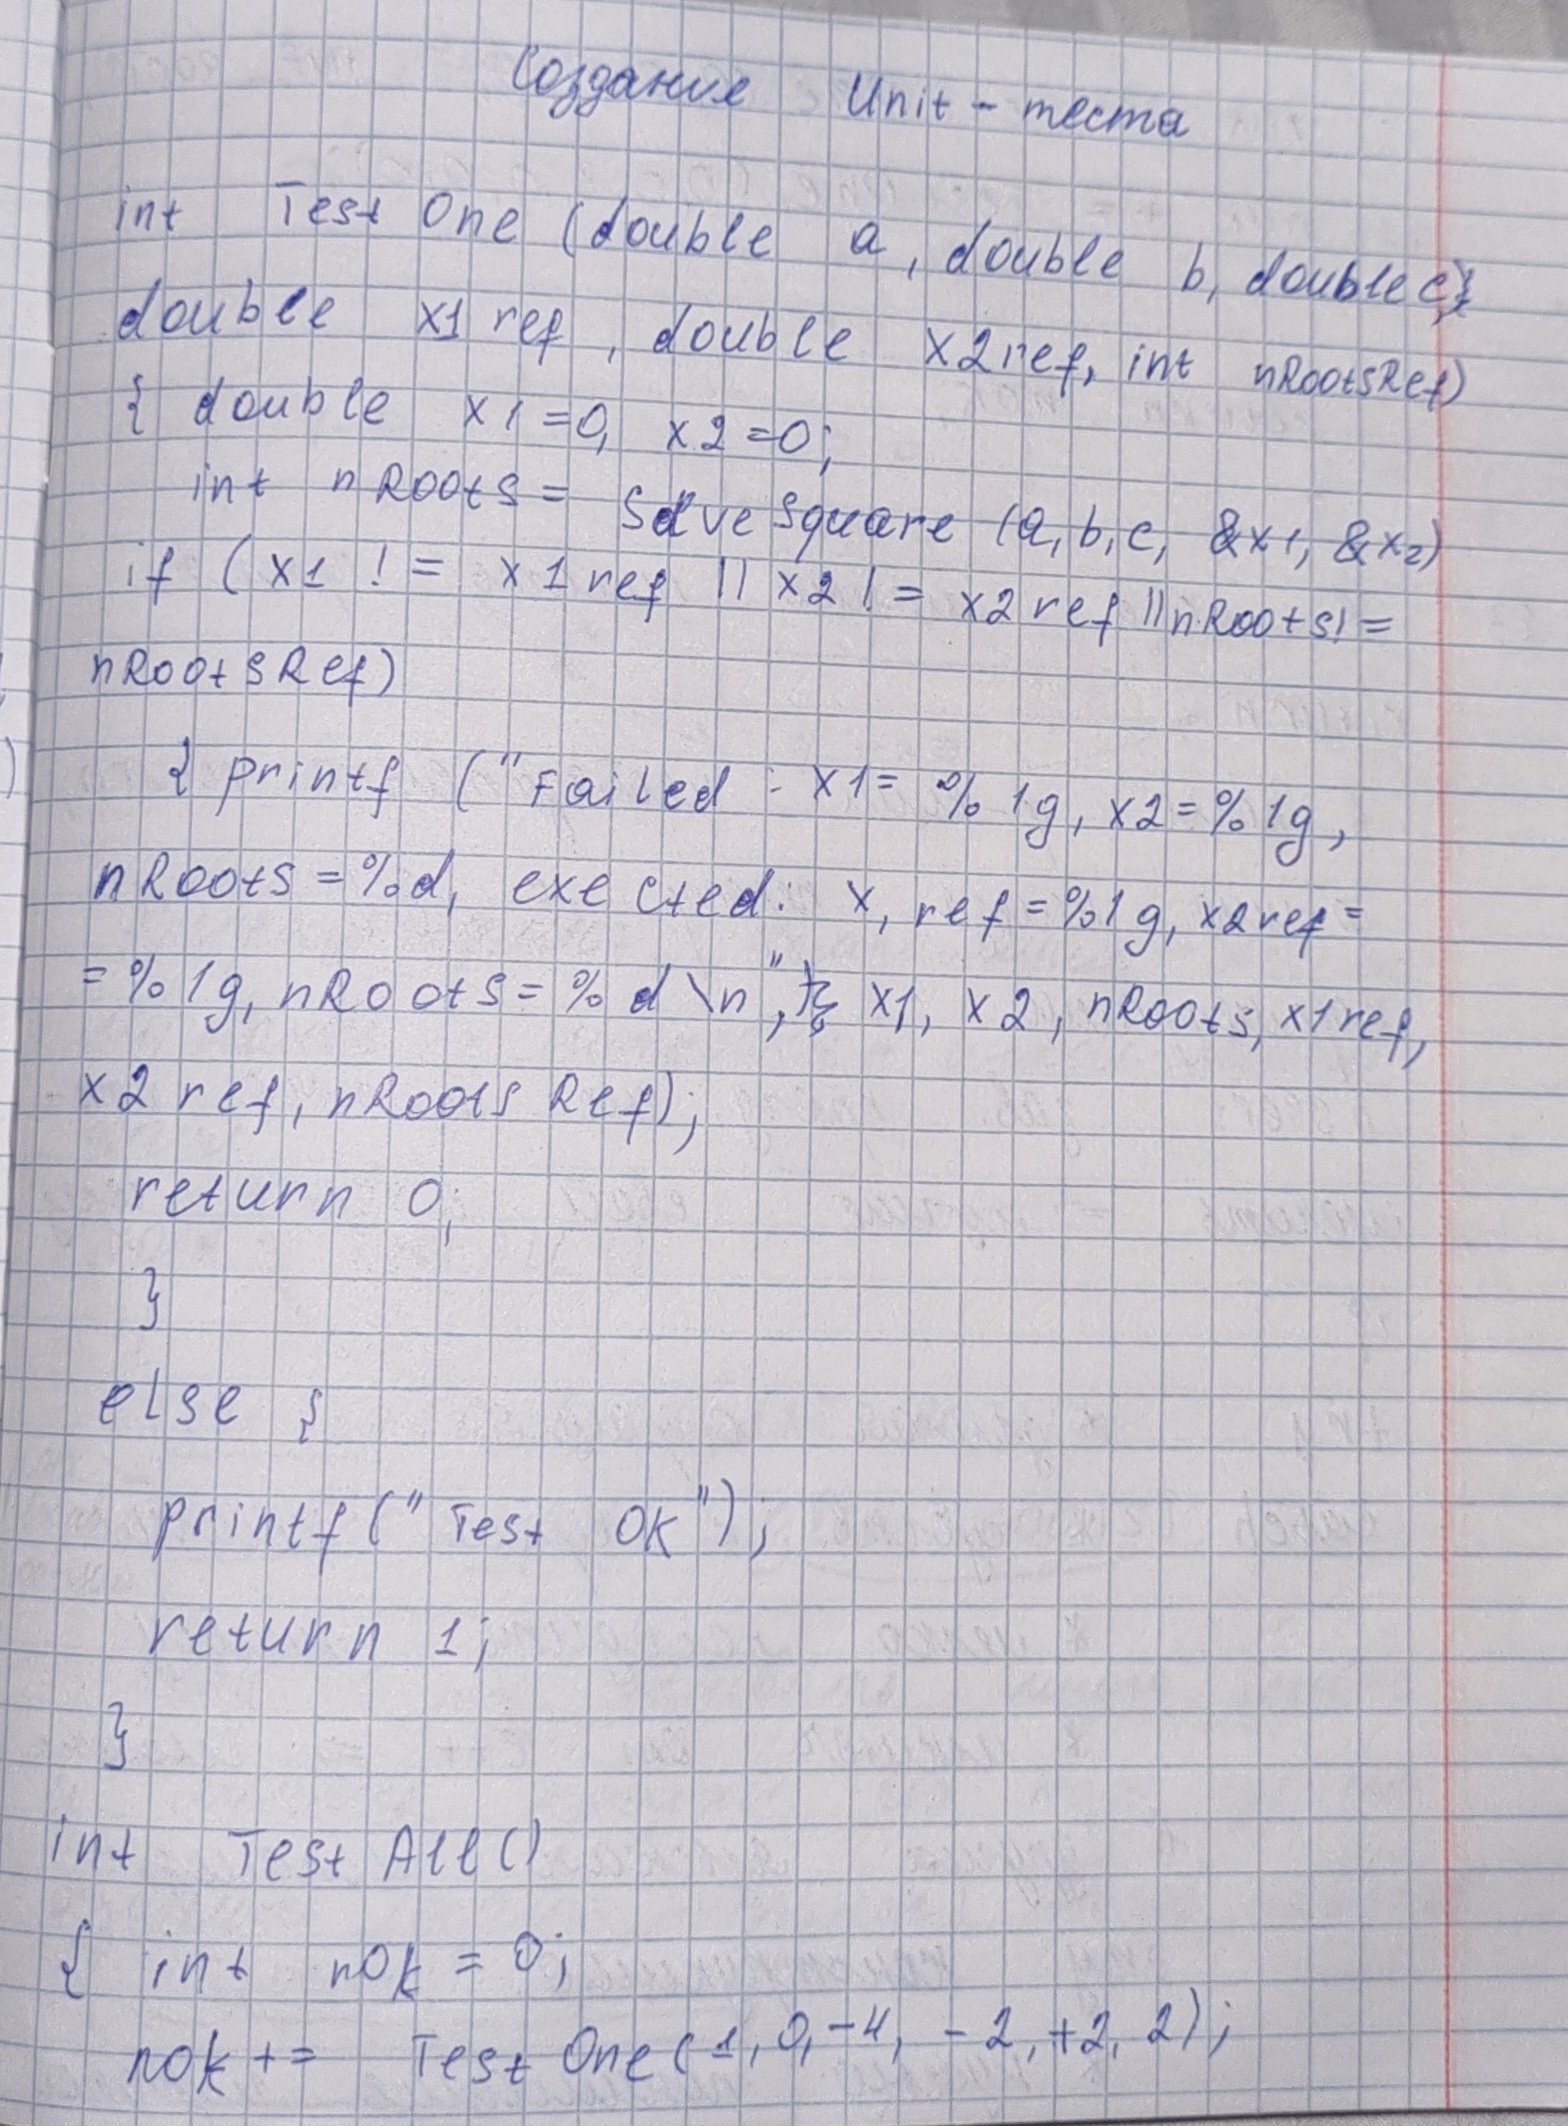 Создание Unit - теста
int Test One (double a, double b, double c,
double x1 ref, double x2 ref, int nRootsRef)
{ double x1 = 0, x2 = 0;
int nRoots = Solve Square (a, b, c, &x1, &x2)
if (x1 != x1 ref || x2 != x2 ref || nRoots! =
nRootsRef)
{ printf ("Failed : x1 = % lg, x2 = % lg,
nRoots = %d, exected: x, ref = %lg, x2 ref =
= % lg, nRoots = % d \n", x1, x2, nRoots, x1 ref,
x2 ref, nRoots Ref);
return 0;
}
else {
printf (" Test OK ");
return 1;
}
int Test All ()
{ int nOk = 0;
nOk += Test One (1, 0, -4, -2, +2, 2);